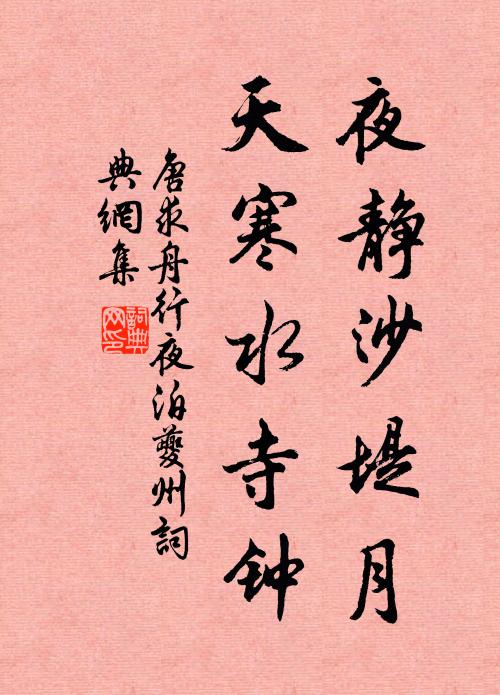 夜静沙堤月
天寒水寺钟
唐求舟行夜泊夔州詞
典網集
詞典
网印